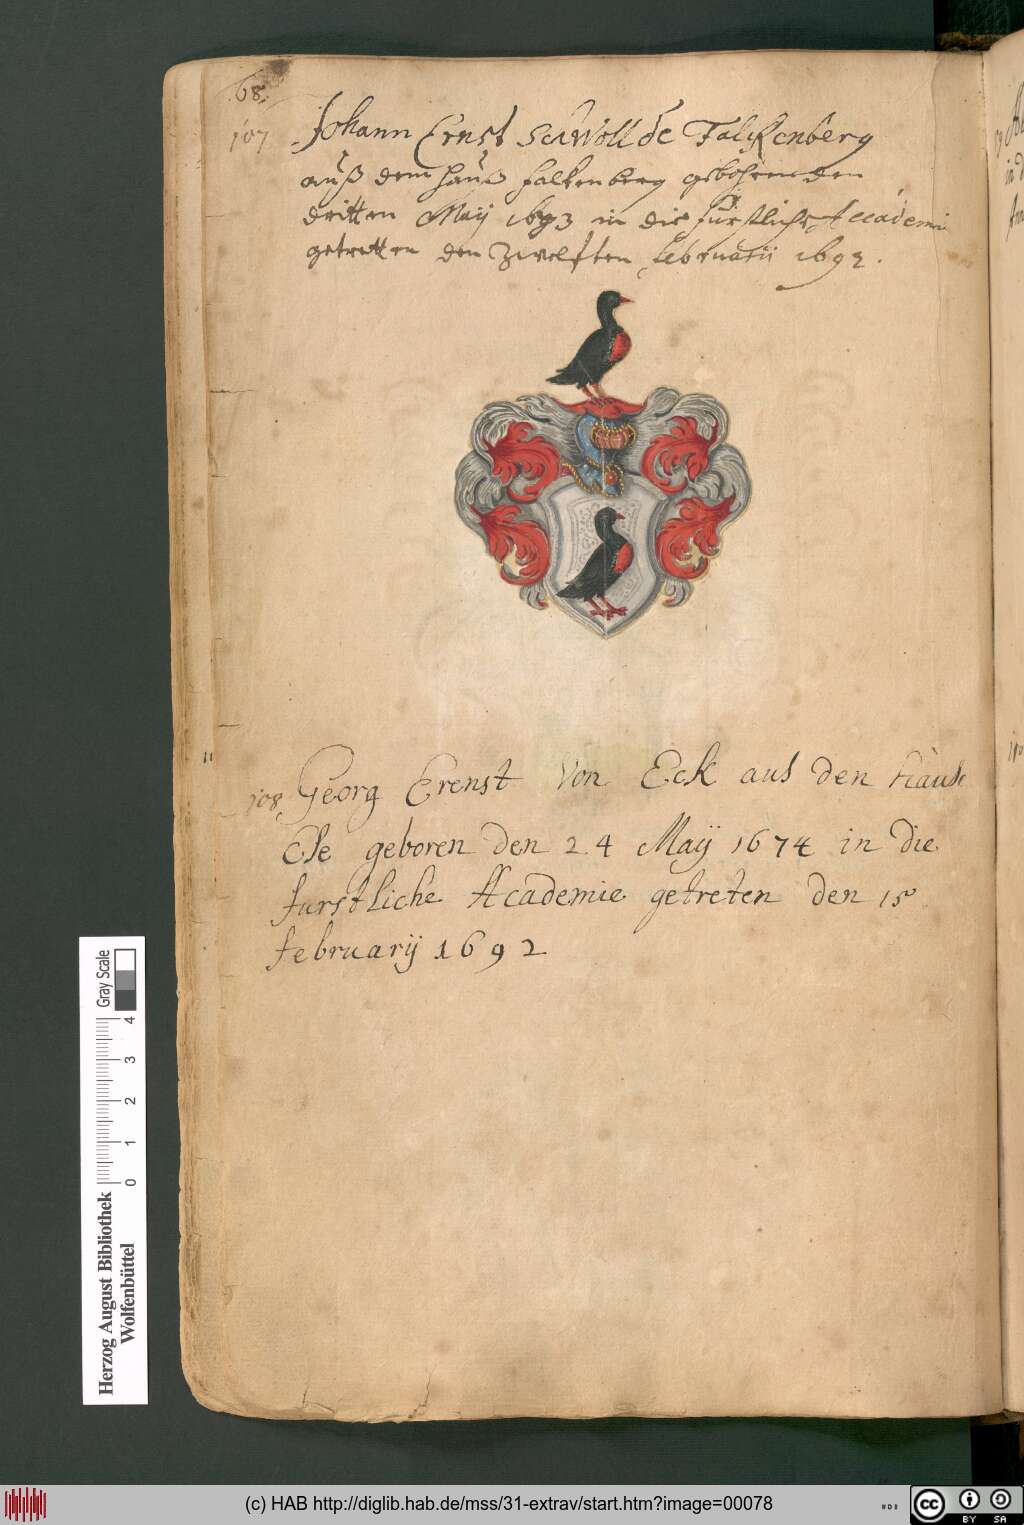 68.
107
Johann Ernst de Falckenberg
auß dem Hauß Falkenberg gebohren den
dritten Maij in die fürstliche Accademi
getretten den Zwolften februarii 1692.
108 Georg Erenst Von Eck aus den Hause
geboren den 24 Maÿ 1674 in die
furstliche Academie getreten den 15
februarÿ 1692
Gray Scale
0 1 2 3 4
Herzog August Bibliothek
Wolfenbüttel
(c) HAB http://diglib.hab.de/mss/31-extrav/start.htm?image=00078
cc BY SA